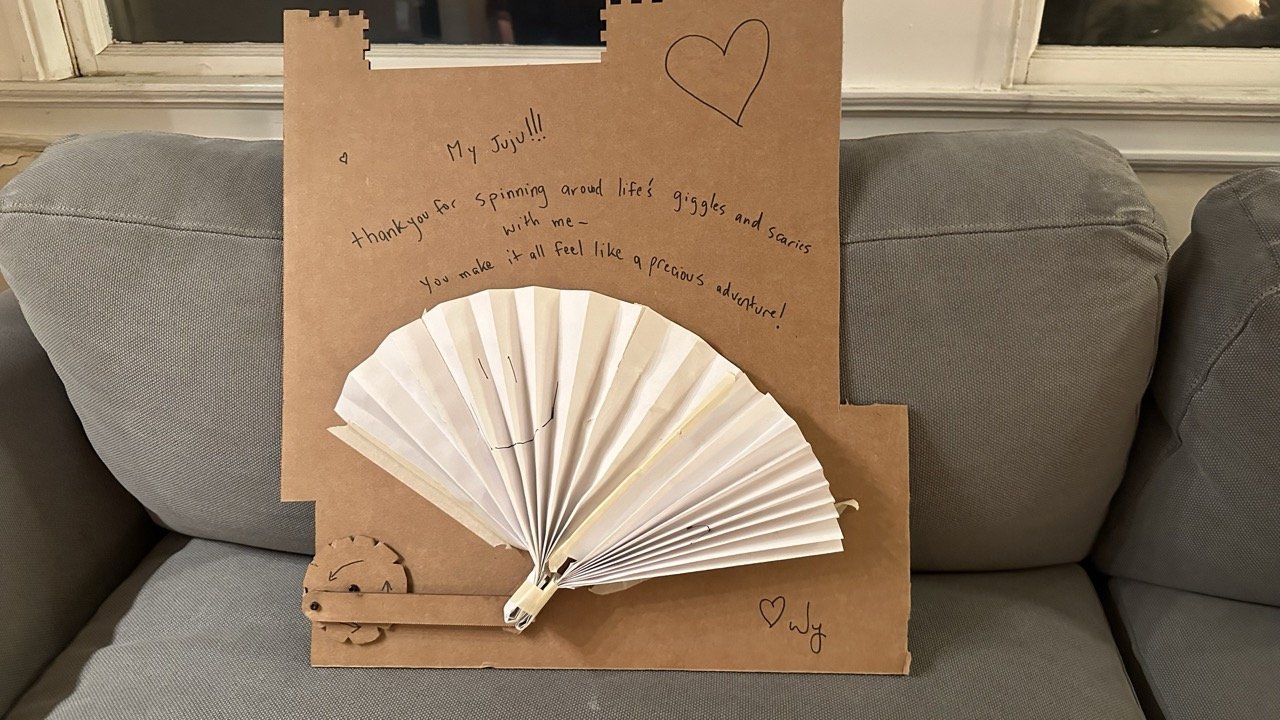 My Juju!!!
thankyou for spinning around life's giggles and scaries
with me~
you make it all feel like a precious adventure!
Wy